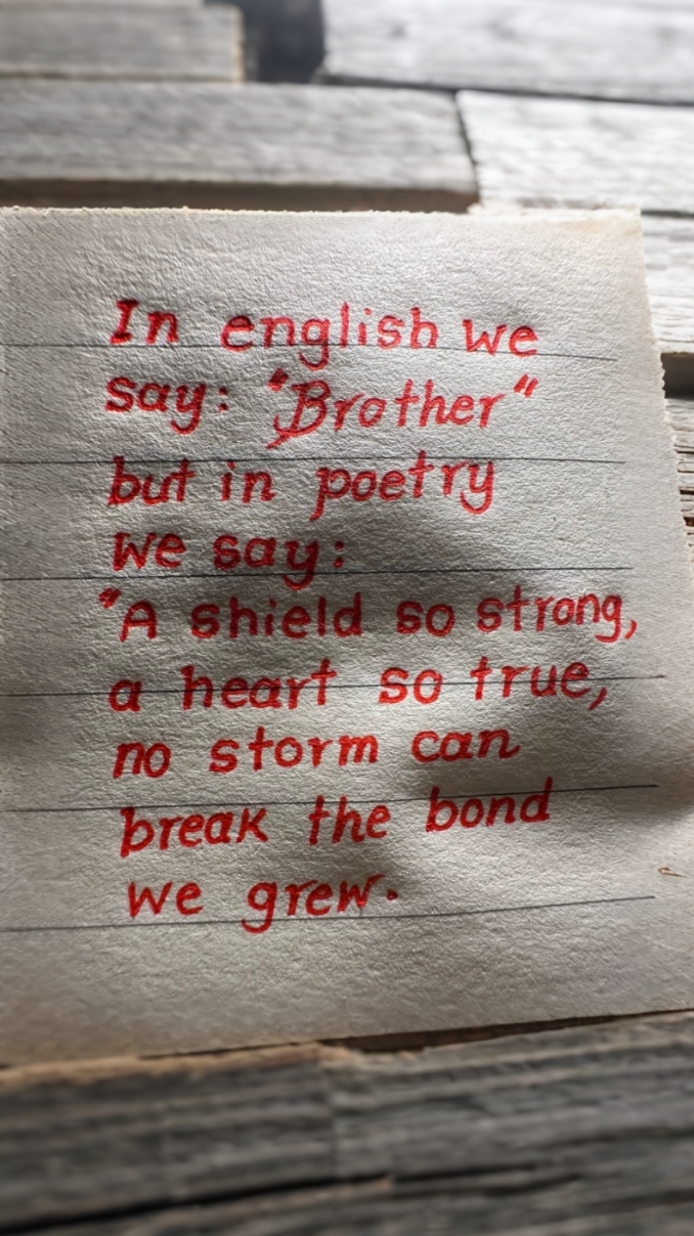 In english we
say: "Brother"
but in poetry
we say:
"A shield so strong,
a heart so true,
no storm can
break the bond
we grew.